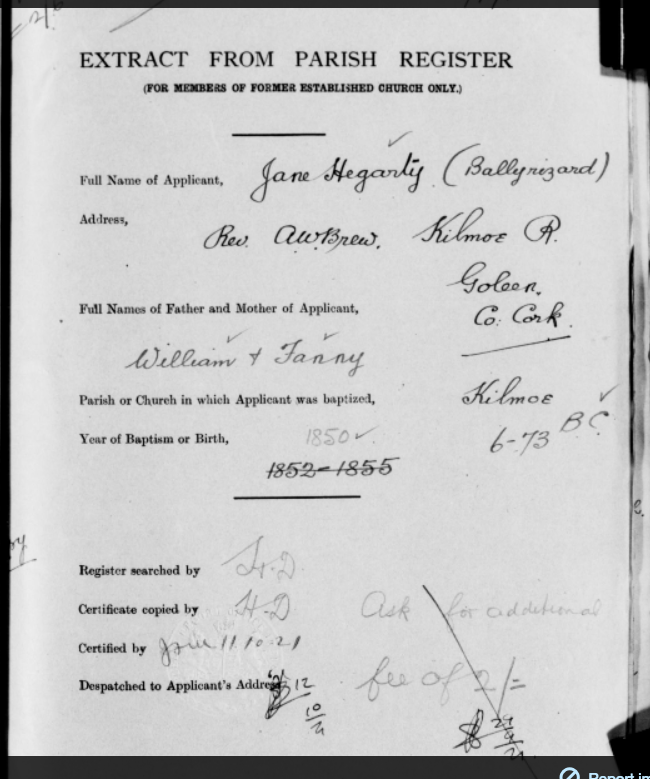 EXTRACT FROM PARISH REGISTER
(FOR MEMBERS OF FORMER ESTABLISHED CHURCH ONLY.)
Full Name of Applicant, Jane Hegarty (Ballyrizard)
Address,
Rev. A.W. Brew, Kilmoe R.
Goleen,
Co. Cork.
Full Names of Father and Mother of Applicant,
William & Fanny
Parish or Church in which Applicant was baptized, Kilmoe
Year of Baptism or Birth, 1850 6-73 B C
1852-1855
Register searched by H.D
Certificate copied by H.D Ask for additional
Certified by 11.10.21
Despatched to Applicant's Address fee of 2/=
12
10
21
29
9
21
Report im